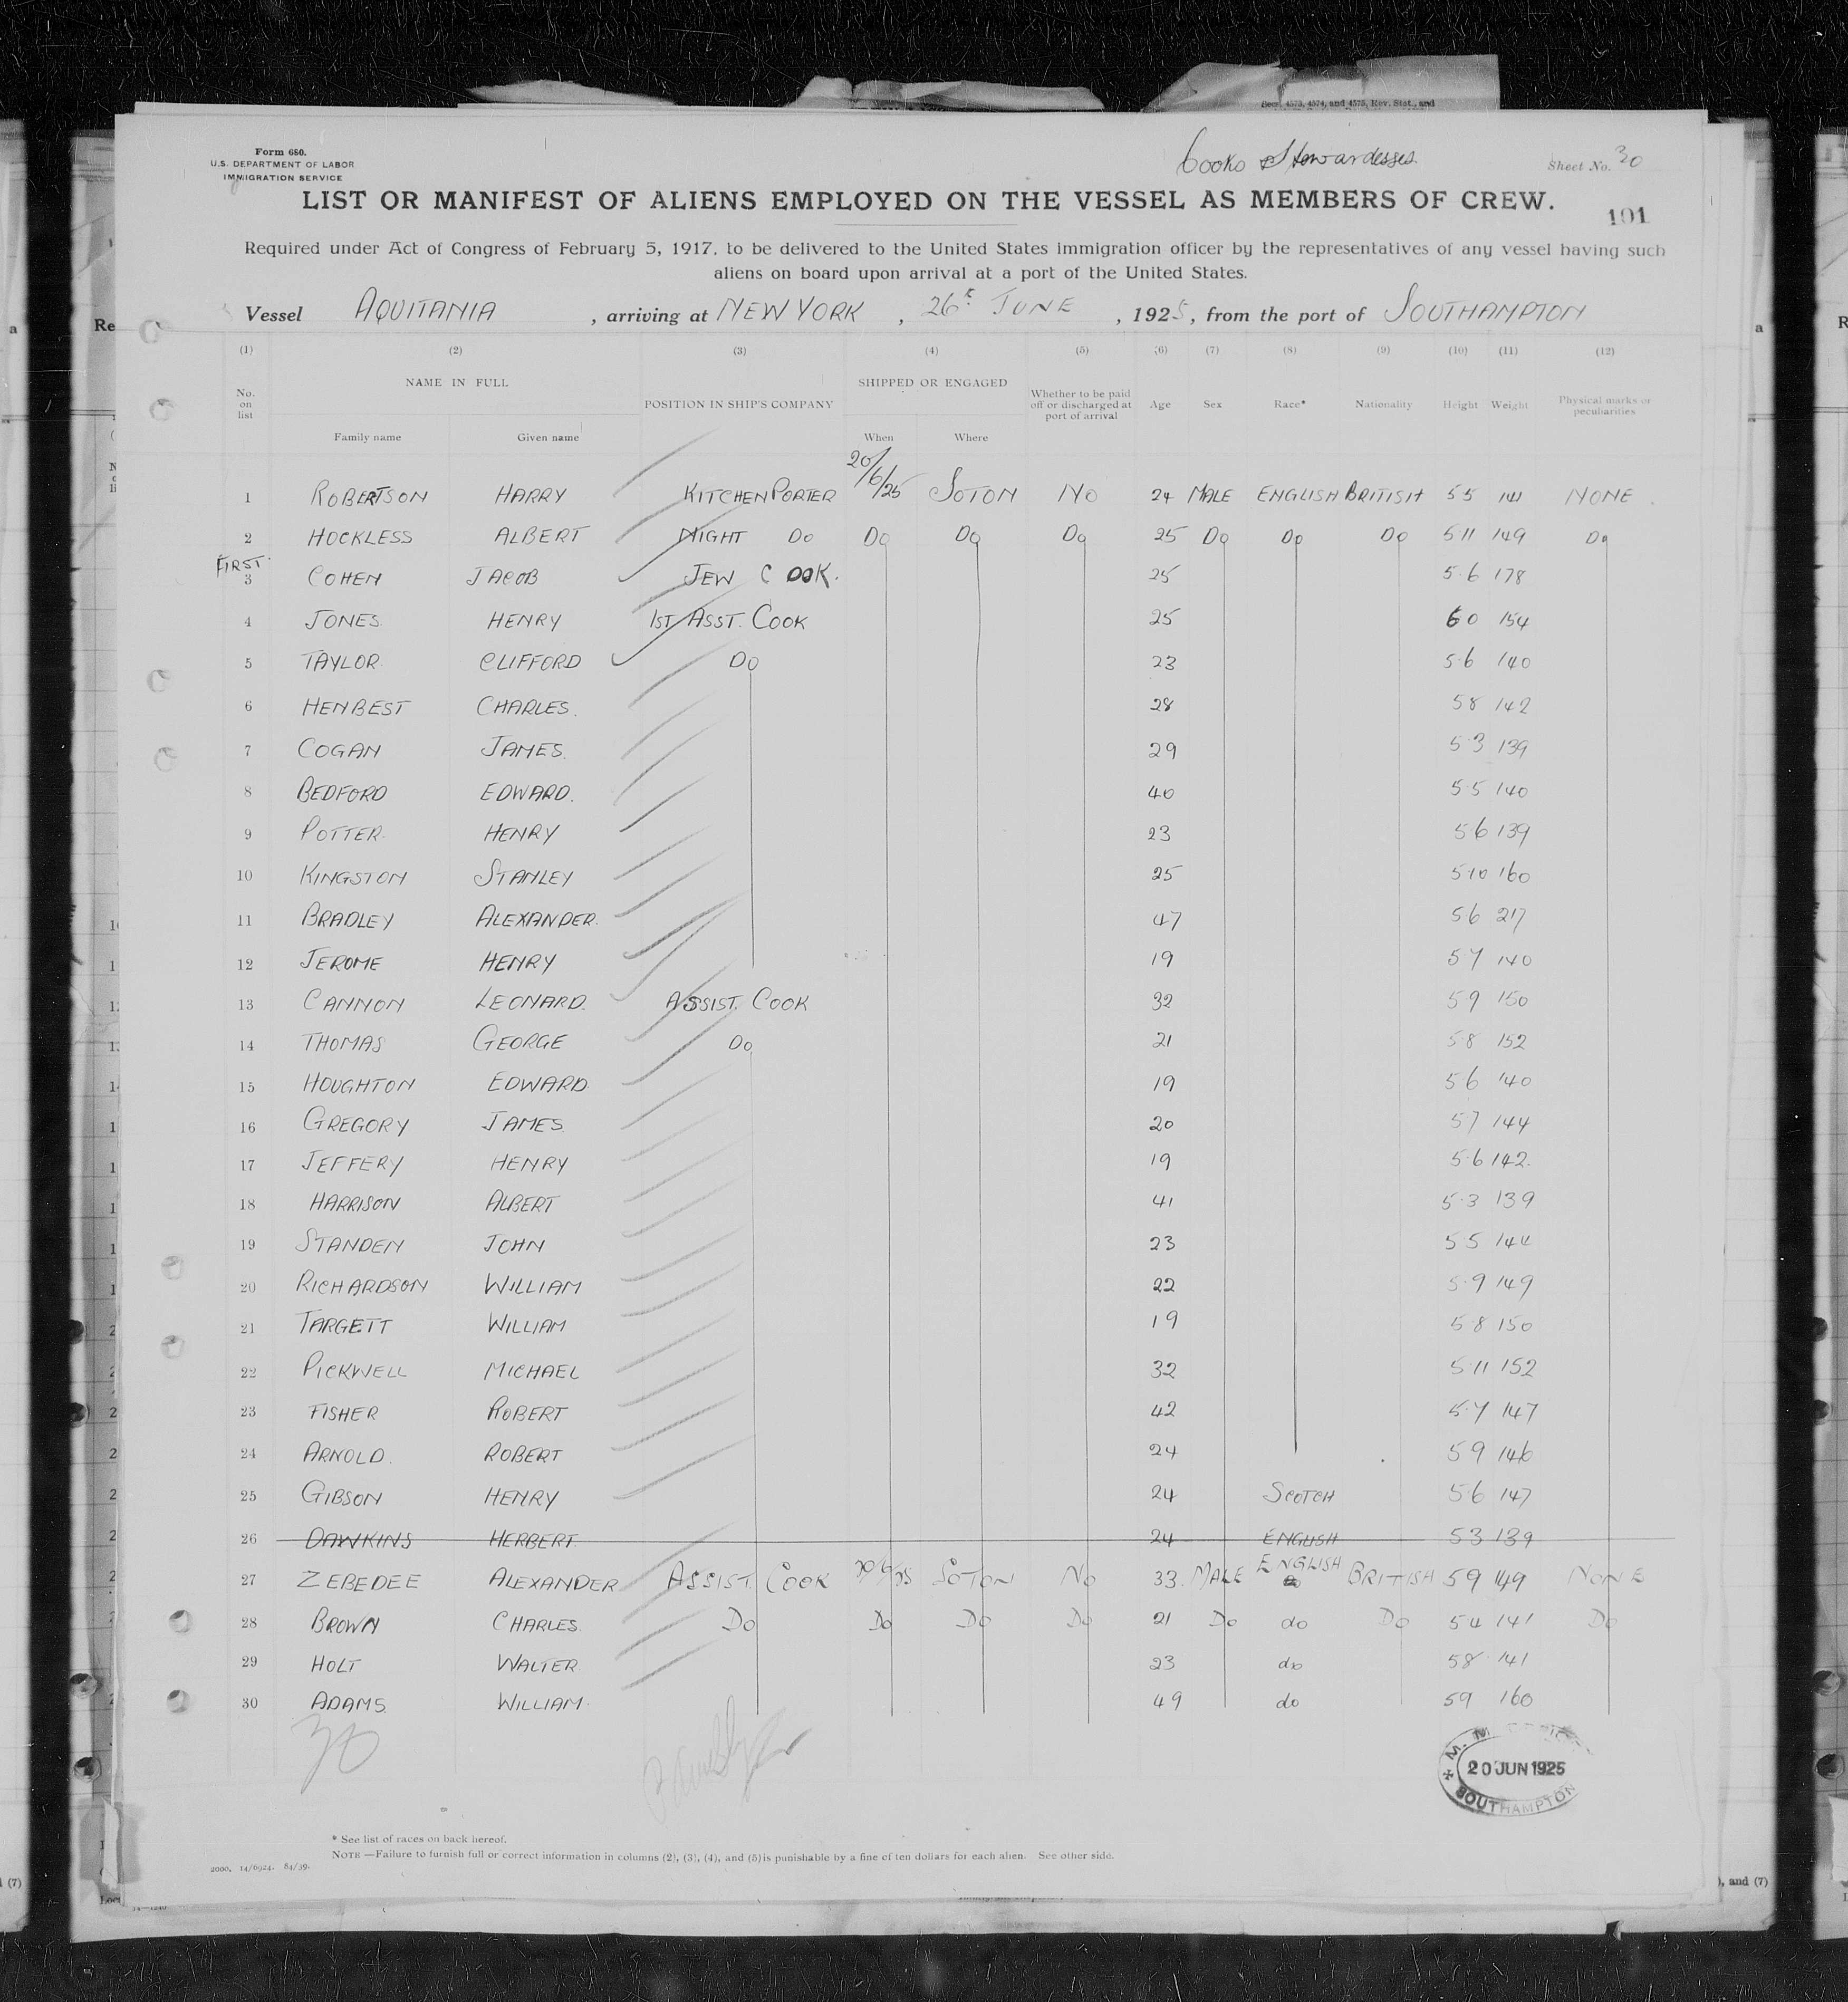 Secs. 4573, 4574, and 4575, Rev. Stat., and
Form 680.
U.S. DEPARTMENT OF LABOR
IMMIGRATION SERVICE
Cooks & Stewardesses
Sheet No. 30
LIST OR MANIFEST OF ALIENS EMPLOYED ON THE VESSEL AS MEMBERS OF CREW.
101
Required under Act of Congress of February 5, 1917, to be delivered to the United States immigration officer by the representatives of any vessel having such
aliens on board upon arrival at a port of the United States.
Vessel AQUITANIA, arriving at NEW YORK, 26th JUNE, 1925, from the port of SOUTHAMPTON
(1) (2) (3) (4) (5) (6) (7) (8) (9) (10) (11) (12)
No. on list NAME IN FULL POSITION IN SHIP'S COMPANY SHIPPED OR ENGAGED Whether to be paid off or discharged at port of arrival Age Sex Race* Nationality Height Weight Physical marks or peculiarities
Family name Given name When Where
1 ROBERTSON HARRY KITCHEN PORTER 20/6/25 SOTON NO 24 MALE ENGLISH BRITISH 5 5 141 NONE
2 HOCKLESS ALBERT NIGHT DO DO DO DO 25 DO DO DO 5 11 149 DO
FIRST
3 COHEN JACOB JEW COOK. 25 5.6 178
4 JONES HENRY 1ST ASST. COOK 25 6 0 154
5 TAYLOR CLIFFORD DO 23 5.6 140
6 HENBEST CHARLES. 28 5 8 142
7 COGAN JAMES. 29 5.3 139
8 BEDFORD EDWARD. 40 5.5 140
9 POTTER HENRY 23 5.6 139
10 KINGSTON STANLEY 25 5.10 160
11 BRADLEY ALEXANDER. 47 5 6 217
12 JEROME HENRY 19 5 7 140
13 CANNON LEONARD. ASSIST. COOK 32 5 9 150
14 THOMAS GEORGE DO 21 5.8 152
15 HOUGHTON EDWARD. 19 5 6 140
16 GREGORY JAMES. 20 5 7 144
17 JEFFERY HENRY 19 5.6 142.
18 HARRISON ALBERT 41 5.3 139
19 STANDEN JOHN 23 5 5 144
20 RICHARDSON WILLIAM 22 5.9 149
21 TARGETT WILLIAM 19 5.8 150
22 PICKWELL MICHAEL 32 5.11 152
23 FISHER ROBERT 42 5.7 147
24 ARNOLD. ROBERT 24 5 9 146
25 GIBSON HENRY 24 SCOTCH 5 6 147
26 DAWKINS HERBERT. 24 ENGLISH 5 3 139
27 ZEBEDEE ALEXANDER ASSIST. COOK 20/6/25 SOTON NO 33. MALE ENGLISH BRITISH 5 9 149 NONE
28 BROWN CHARLES. DO DO DO DO 21 DO do DO 5 4 141 DO
29 HOLT WALTER 23 do 5 8 141
30 ADAMS. WILLIAM. 49 do 5 9 160
30
M. M. OFFICE
20 JUN 1925
SOUTHAMPTON
* See list of races on back hereof.
NOTE —Failure to furnish full or correct information in columns (2), (3), (4), and (5) is punishable by a fine of ten dollars for each alien. See other side.
2000. 14/6924. 84/39.